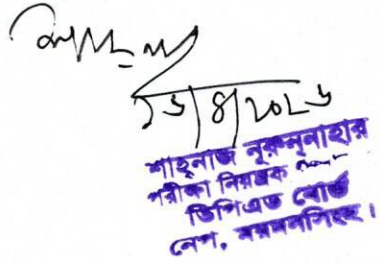 ১৬/৪/২০১৬
শাহ্‌নাজ নূরুন্‌নাহার
পরীক্ষা নিয়ন্ত্রক
ডিপিএড বোর্ড
নেপ, ময়মনসিংহ।